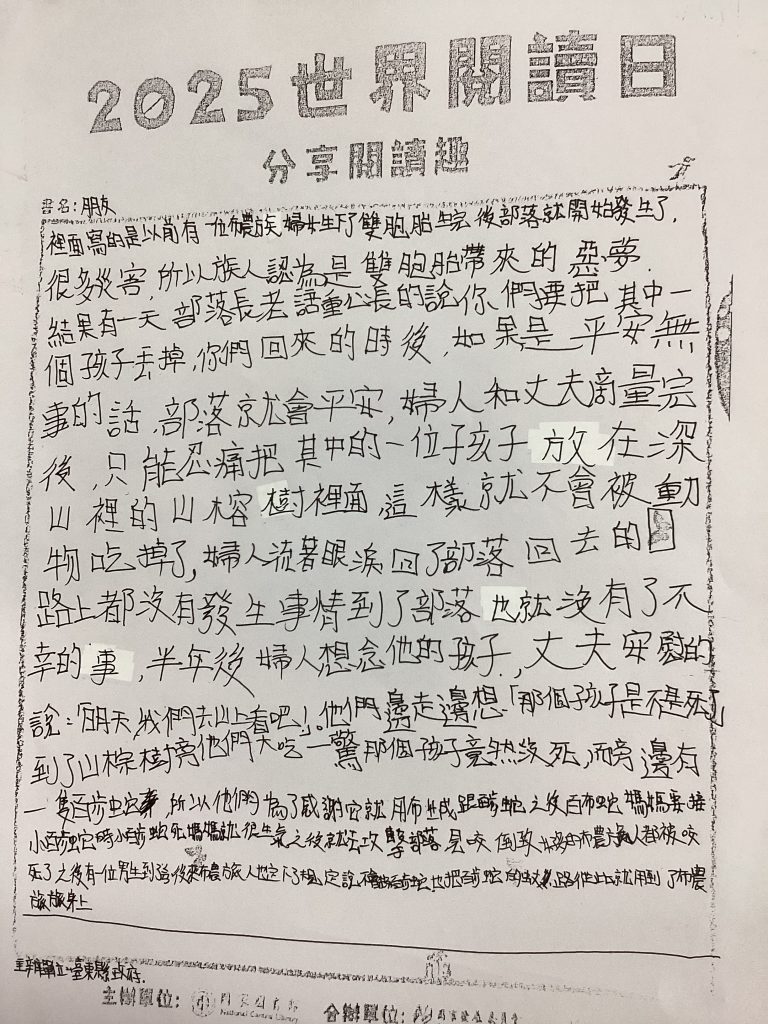 2025世界閱讀日
分享閱讀趣
書名：朋友
裡面寫的是以前有一位布農族婦女生下了雙胞胎生完後部落就開始發生了,
很多災害,所以族人認為是雙胞胎帶來的惡夢.
結果有一天部落長老話重心長的說你們要把其中一
個孩子丟掉,你們回來的時後,如果是平安無
事的話,部落就會平安,婦人和丈夫商量完
後,只能忍痛把其中的一位子孩子放在深
山裡的山榕樹裡面,這樣就不會被動
物吃掉了,婦人流著眼淚回了部落回去的
路上都沒有發生事情到了部落也就沒有了不
幸的事,半年後婦人想念他的孩子,丈夫安慰的
說:「明天,我們去山上看吧!」。他們邊走邊想「那個孩子是不是死了」
到了山棕樹旁他們大吃一驚那個孩子竟然沒死,而旁邊有
一隻百步蛇,所以他們為了感謝它就用布 跟百步蛇 之後百布蛇媽媽要接
小百步蛇時小百步蛇死媽媽就很生氣之後就去攻擊部落見咬 布農族人都被咬
死了之後有一位男生到 後來布農族人也定下了規定說不 百步蛇也把百步蛇的 就用到了布農
族 身上
主辦單位：臺東縣政府.
主辦單位：國家圖書館
National Central Library
合辦單位：